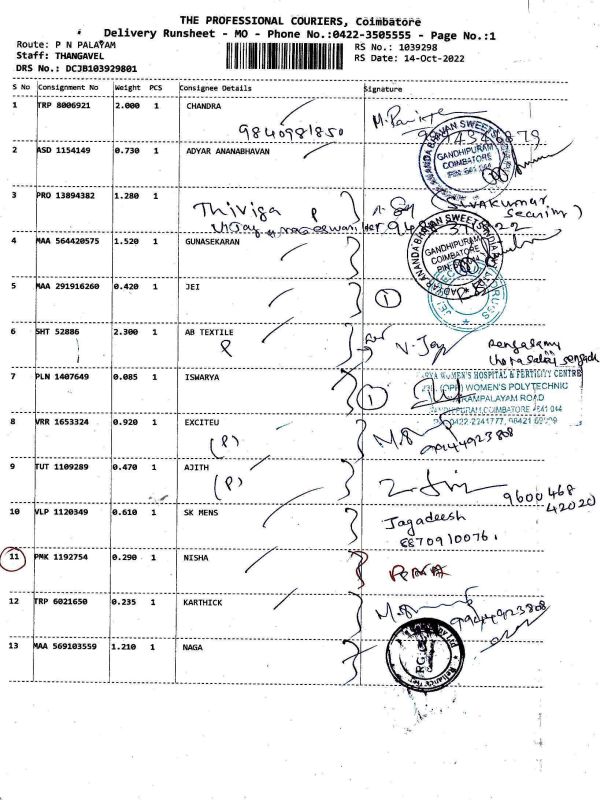 THE PROFESSIONAL COURIERS, Coimbatore
Delivery Runsheet - MO - Phone No.:0422-3505555 - Page No.:1
Route: P N PALAYAM
Staff: THANGAVEL
DRS No.: DCJB103929801
RS No.: 1039298
RS Date: 14-Oct-2022
S No Consignment No Weight PCS Consignee Details Signature
1 TRP 8006921 2.000 1 CHANDRA
9840981850
2 ASD 1154149 0.730 1 ADYAR ANANABHAVAN
GANDHIPURAM
COIMBATORE
3 PRO 13894382 1.280 1
Thiviga P
(SIVAKUMAR
4 MAA 564420575 1.520 1 GUNASEKARAN
GANDHIPURAM
COIMBATORE
5 MAA 291916260 0.420 1 JEI 1
JEI
6 SHT 52886 2.300 1 AB TEXTILE
P V. Jay
7 PLN 1407649 0.085 1 ISWARYA 1
WOMEN'S HOSPITAL & FERTILITY CENTRE
(OPP) WOMEN'S POLYTECHNIC
ROAD
COIMBATORE
8 VRR 1653324 0.920 1 EXCITEU
(P) 9944923808
9 TUT 1109289 0.470 1 AJITH
(P) 9600468
42020
10 VLP 1120349 0.610 1 SK MENS
Jagadeesh
8870910076.
11 PMK 1192754 0.290 1 NISHA
12 TRP 6021650 0.235 1 KARTHICK
9944923808
13 MAA 569103559 1.210 1 NAGA